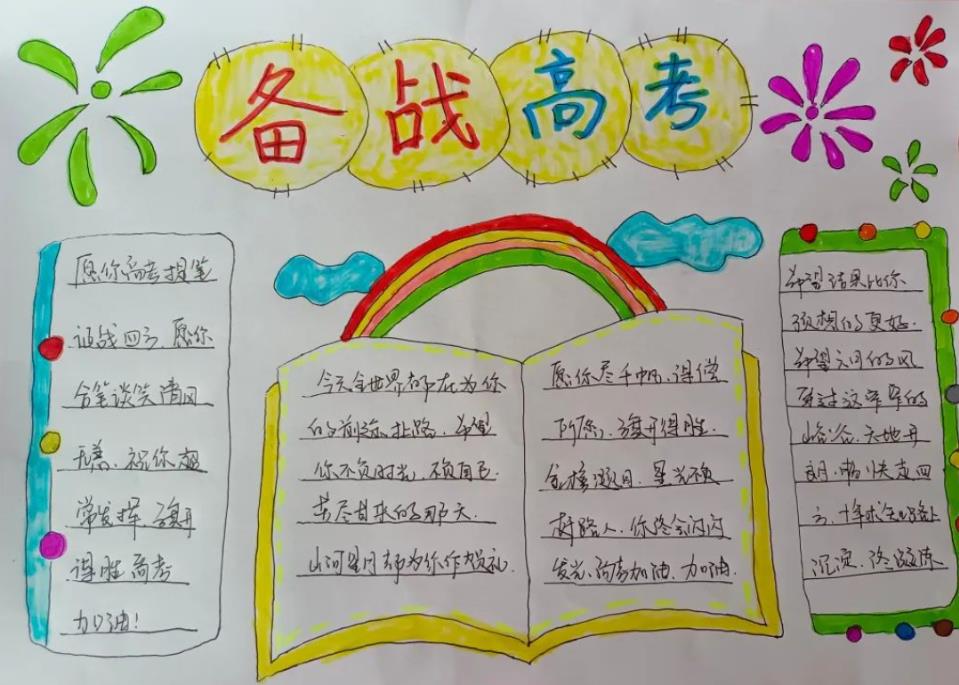 备战高考
愿你高考提笔
征战四方,愿你
合笔谈笑清风
无恙、祝你超
常发挥、旗开
得胜高考
加油!
今天全世界都在为你
的前途让路,希望
你不负时光,不负自己
苦尽甘来的那天.
山河星月都为你作贺礼.
愿你尽千帆、得偿
所愿、旗开得胜.
金榜题目、星光不负
赶路人、你终会闪闪
发光、高考加油、加油.
希望结果比你
预想的更好.
希望六月的风
穿过这窄窄的
峡谷、天地开
朗、畅快走四
方、十年求知路上
沉淀、终